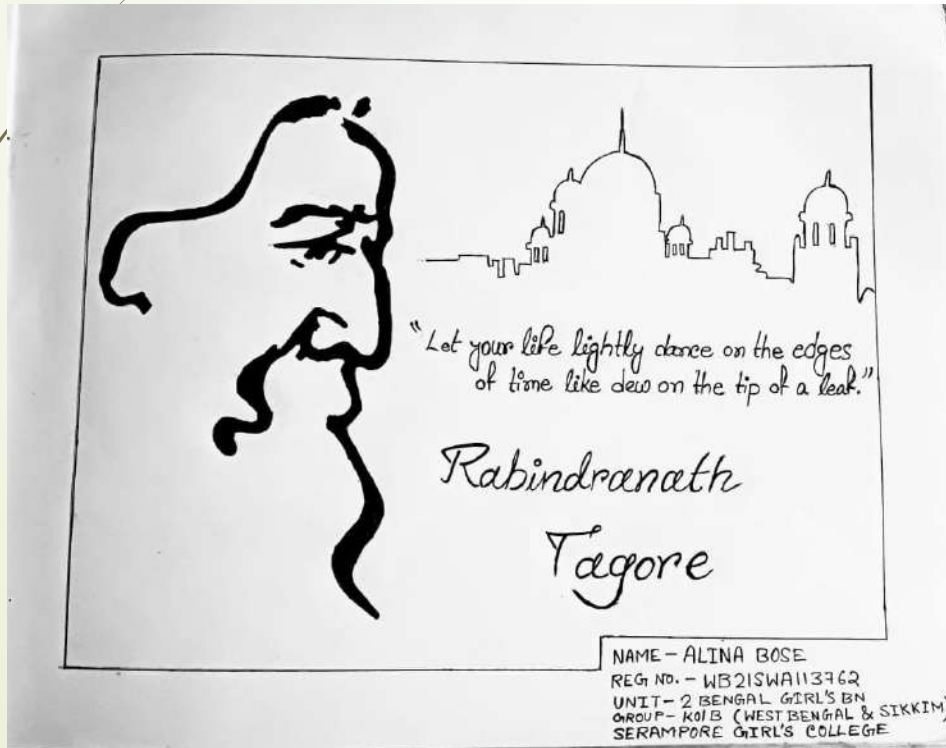 "Let your life lightly dance on the edges
of time like dew on the tip of a leaf."
Rabindranath
Tagore
NAME - ALINA BOSE
REG NO. - WB21SWA113762
UNIT - 2 BENGAL GIRL'S BN
GROUP - KOL B (WEST BENGAL & SIKKIM)
SERAMPORE GIRL'S COLLEGE